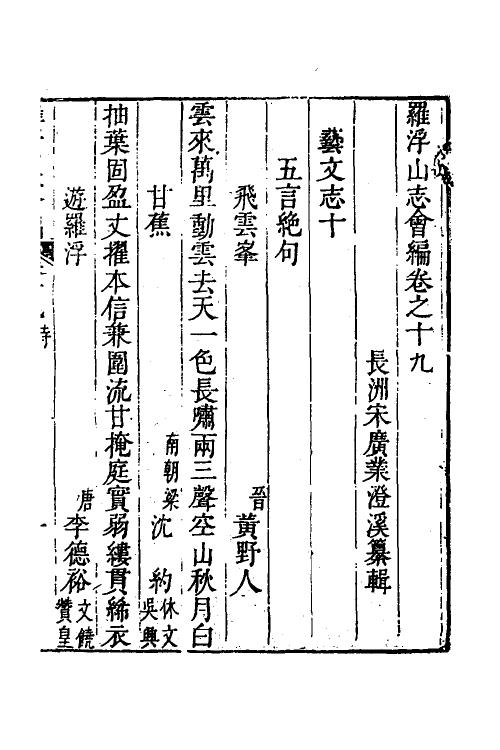 羅浮山志會編卷之十九
長洲宋廣業澄溪纂輯
藝文志十
五言絶句
飛雲峯 晉 黃野人
雲來萬里動雲去天一色長嘯兩三聲空山秋月白
甘蕉 南朝梁 沈約 休文 吳興
抽葉固盈丈擢本信兼圍流甘掩庭實弱縷貫絺衣
遊羅浮 唐 李德裕 文饒 贊皇